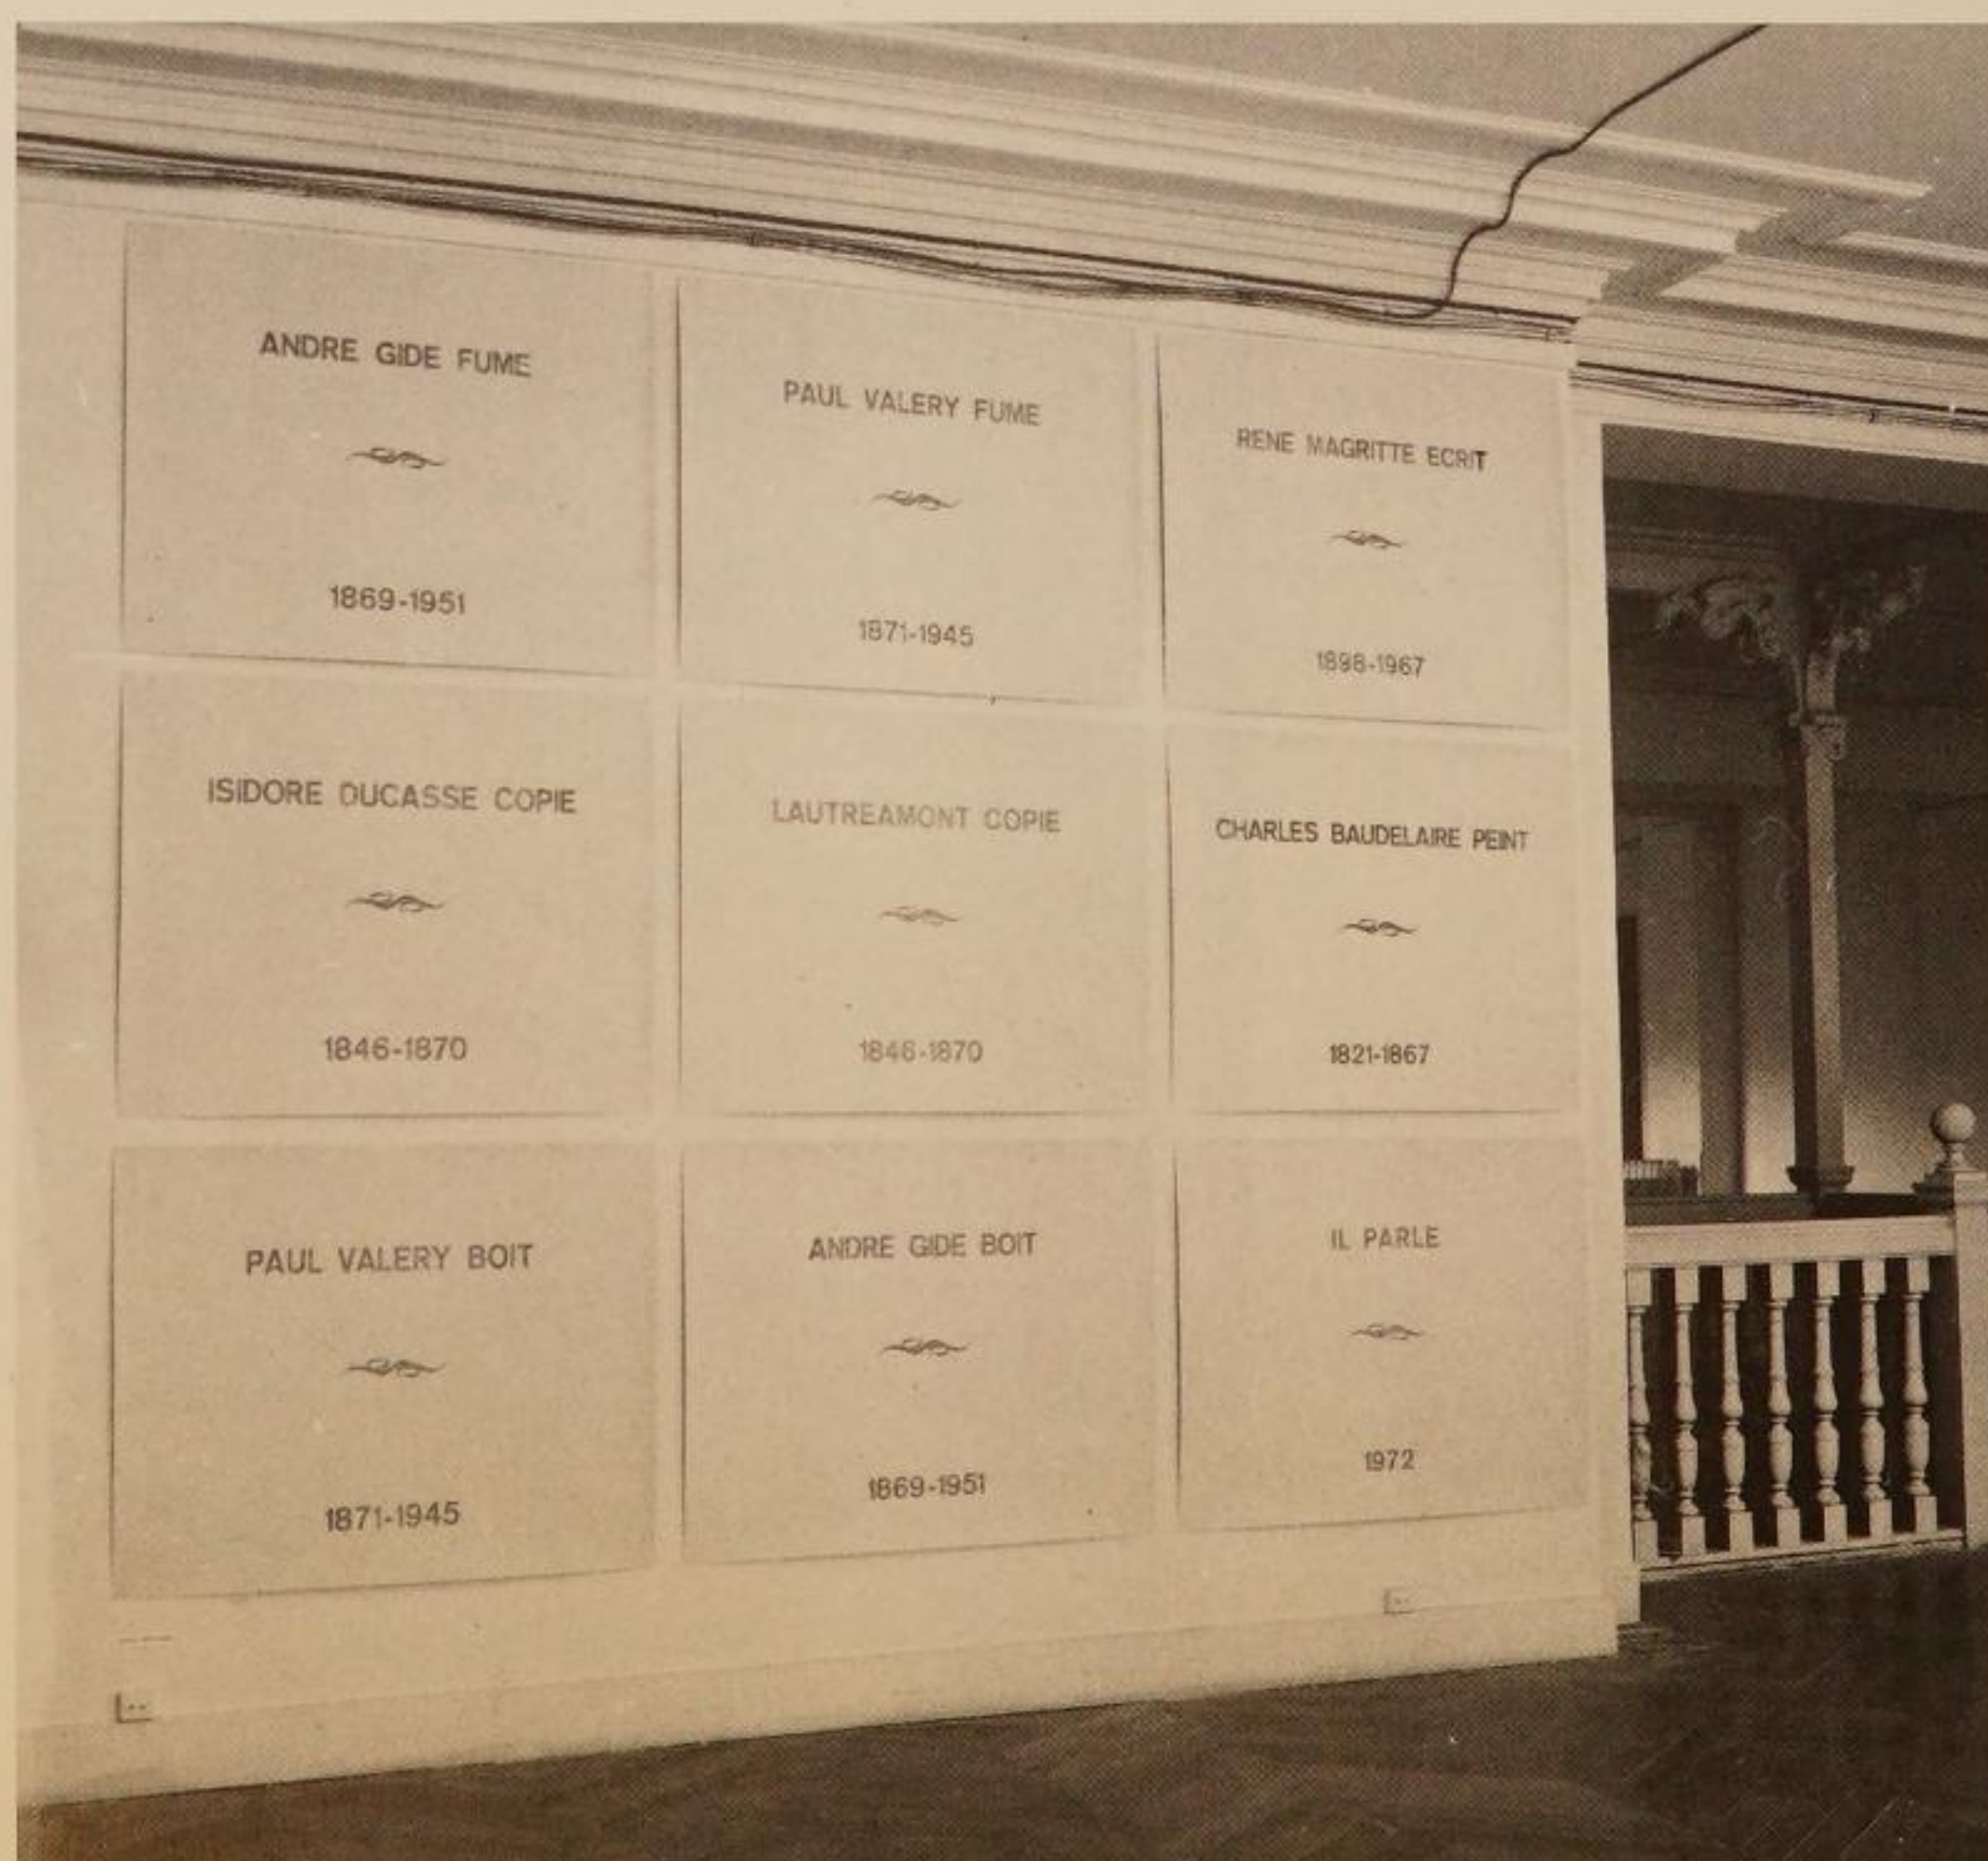 ANDRE GIDE FUME
1869-1951
PAUL VALERY FUME
1871-1945
RENE MAGRITTE ECRIT
1898-1967
ISIDORE DUCASSE COPIE
1846-1870
LAUTREAMONT COPIE
1846-1870
CHARLES BAUDELAIRE PEINT
1821-1867
PAUL VALERY BOIT
1871-1945
ANDRE GIDE BOIT
1869-1951
IL PARLE
1972